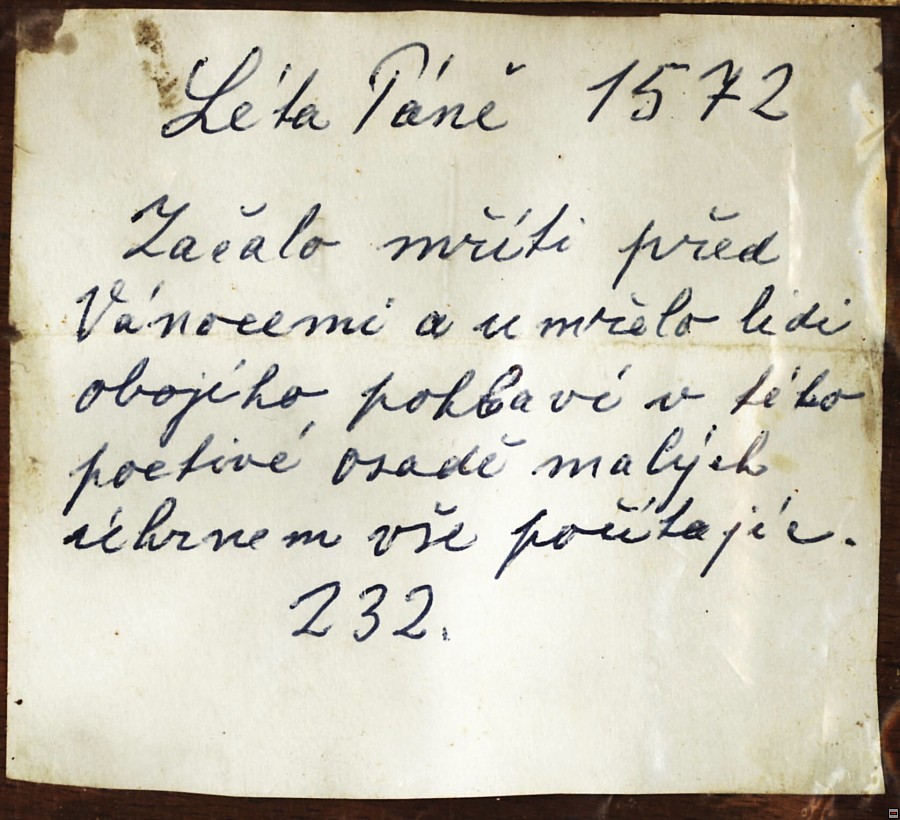 Léta Páně 1572
Začalo mříti před
Vánocemi a umřelo lidí
obojího pohlaví v této
poctivé osadě malých
úhrnem vše počítajíc.
232.